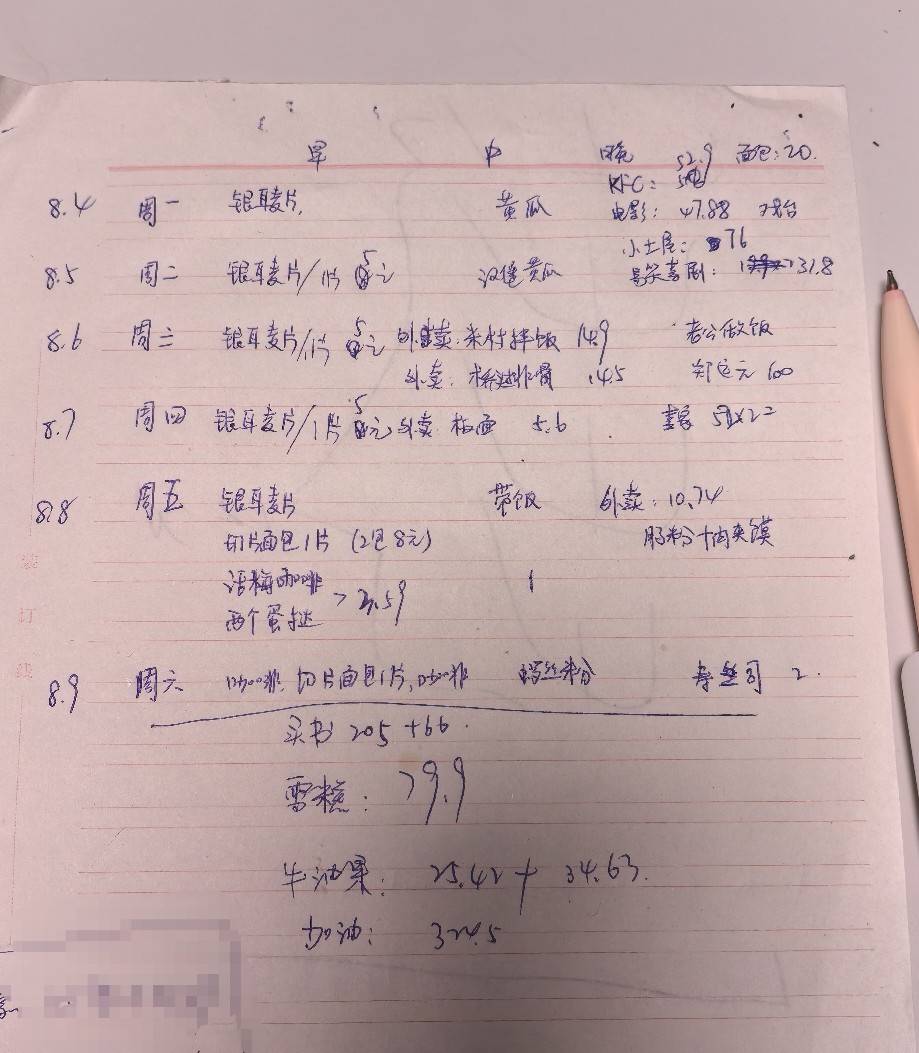 早 中 晚 52.9 面包:20.
KFC:
8.4 周一 银耳麦片, 黄瓜 电影: 47.88
小土屋: 76
8.5 周二 银耳麦片/1片 5元 汉堡黄瓜 喜剧: 131.8
8.6 周三 银耳麦片/1片 5元 外卖. 米村拌饭 14.9 老公做饭
外卖: 排骨 14.5 100
8.7 周四 银耳麦片/1片 5元 外卖 板面 5.6
8.8 周五 银耳麦片 带饭 外卖: 10.74
切片面包1片 (2包8元) 肠粉+肉夹馍
话梅咖啡
两个蛋挞
8.9 周六 咖啡, 切片面包1片, 咖啡 螺丝米分 寿司 2.
买书 205 +66.
雪糕: 79.9
牛油果: 25.42 + 34.63.
加油: 324.5
装
订
线